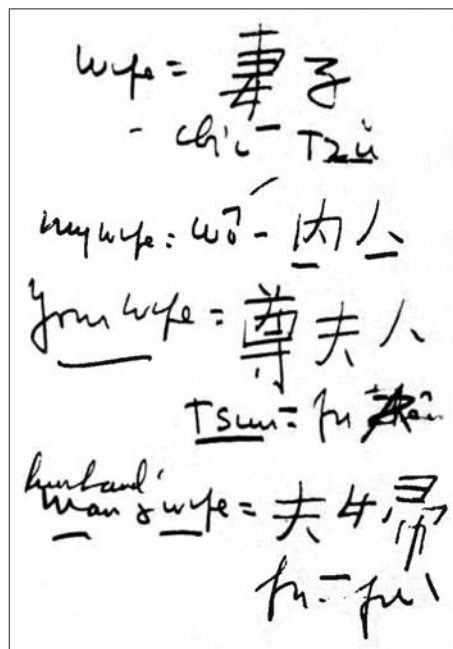 wife = 妻子
- ch'i - Tzŭ
my wife: wǒ - 内人
your wife = 尊夫人
Tsun - fu
husband
man & wife = 夫婦
fu - fu\